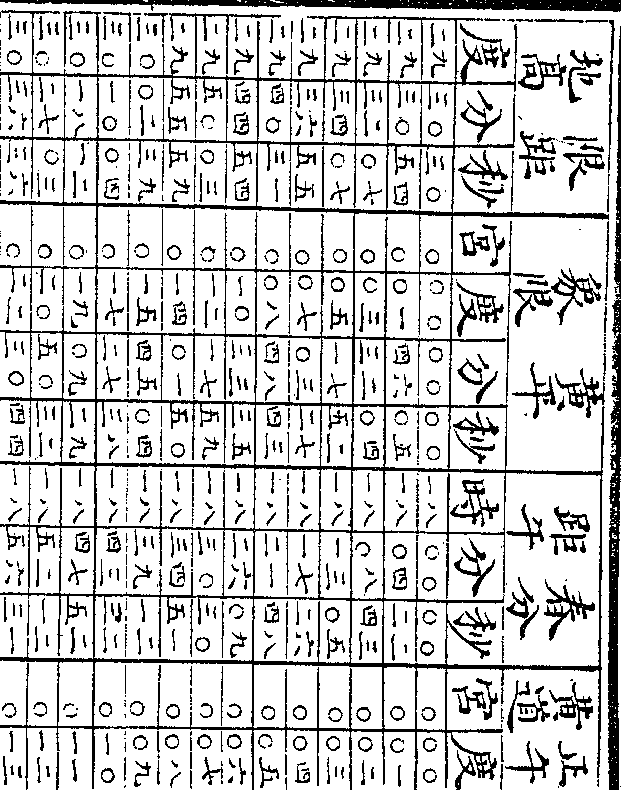 限距地高 黃平象限 春分距午 正午黃道
度 分 秒 宮 度 分 秒 時 分 秒 宮 度
二九 三〇 三〇 〇 〇〇 〇〇 〇〇 一八 〇〇 〇〇 〇 〇〇
二九 三〇 五四 〇 〇一 四六 〇五 一八 〇四 二二 〇 〇一
二九 三二 〇七 〇 〇三 三二 〇四 一八 〇八 四三 〇 〇二
二九 三四 〇七 〇 〇五 一七 五二 一八 一三 〇五 〇 〇三
二九 三六 五五 〇 〇七 〇三 二七 一八 一七 二六 〇 〇四
二九 四〇 三一 〇 〇八 四八 四三 一八 二一 四八 〇 〇五
二九 四四 五四 〇 一〇 三三 三五 一八 二六 〇九 〇 〇六
二九 五〇 〇三 〇 一二 一七 五九 一八 三〇 三〇 〇 〇七
二九 五五 五九 〇 一四 〇一 五〇 一八 三四 五一 〇 〇八
三〇 〇二 三九 〇 一五 四五 〇四 一八 三九 一二 〇 〇九
三〇 一〇 〇四 〇 一七 二七 三八 一八 四三 三二 〇 一〇
三〇 一八 一二 〇 一九 〇九 二九 一八 四七 五二 〇 一一
三〇 二七 〇三 〇 二〇 五〇 三二 一八 五二 一二 〇 一二
三〇 三六 三六 〇 二二 三〇 四四 一八 五六 三一 〇 一三